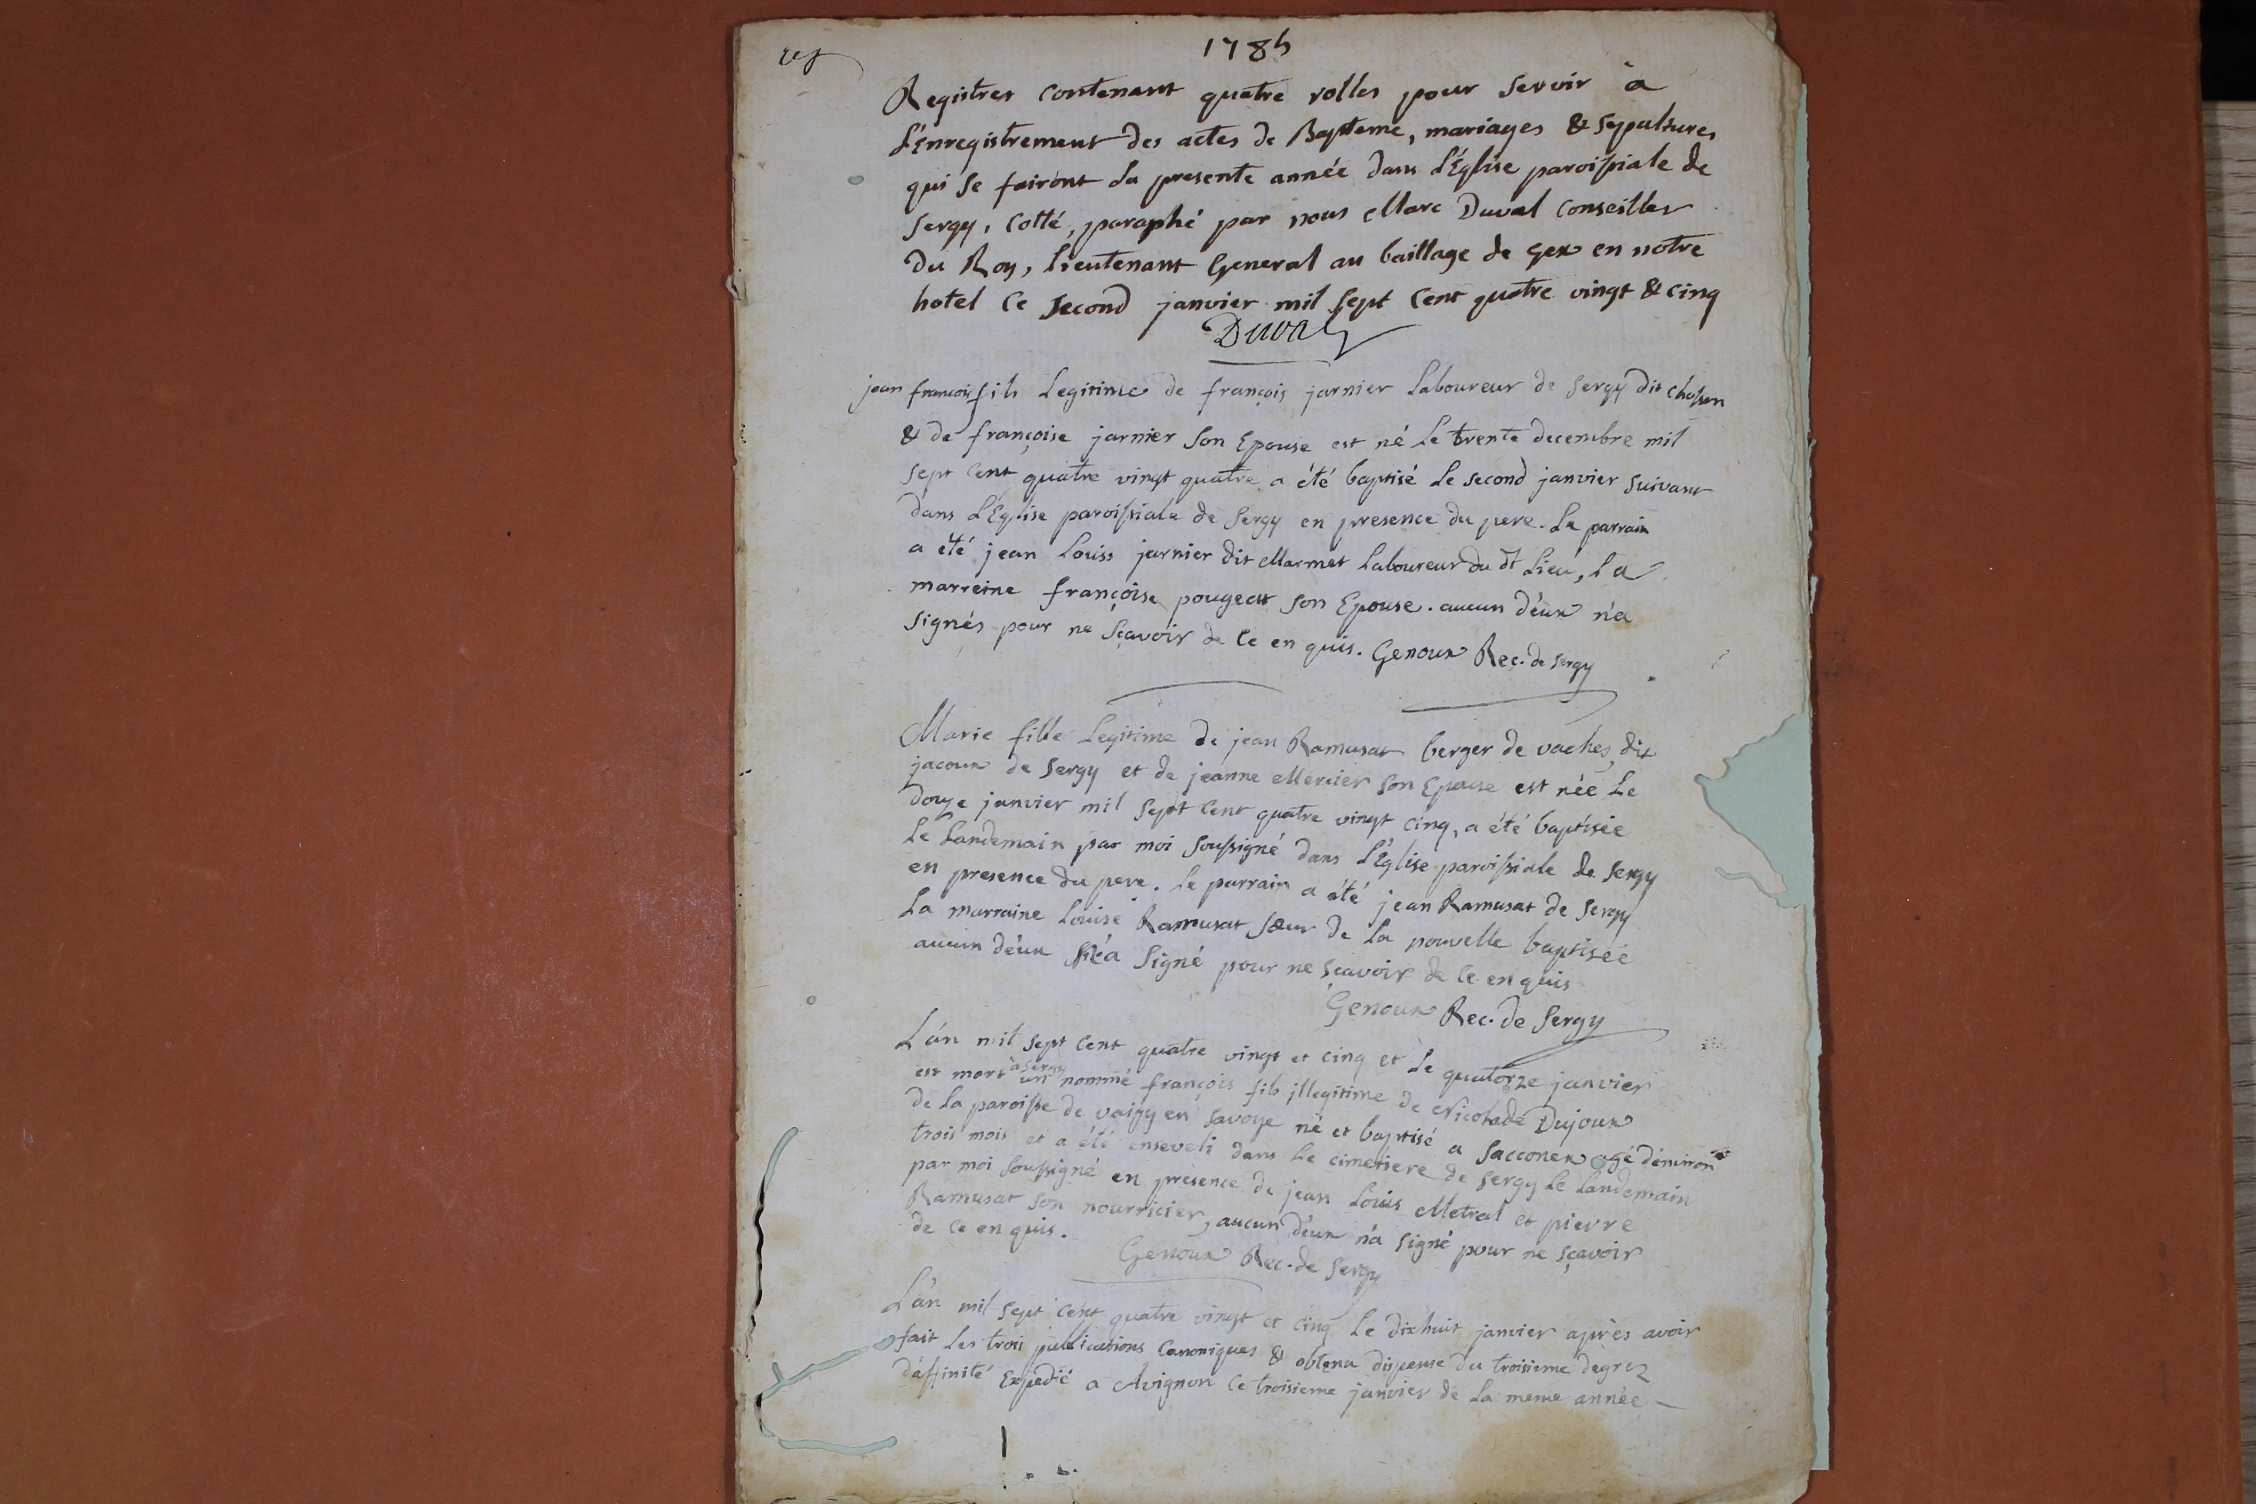 1785
Registres contenant quatre rolles pour servir à
L'énregistrement des actes de Bapteme, mariages & sepultures
qui se fairont La presente année dans L'église paroissiale de
Sergy, Cotté, paraphé par nous Marc Duval Conseiller
Du Roy, Lieutenant General au baillage de Gex en notre
hotel Ce Second janvier mil Sept Cent quatre vingt & cinq
Duval
jean françois fils Legitime de françois jarnier Laboureur de Sergy dit
& de françoise jarnier Son Epouse est né Le trente decembre mil
Sept Cent quatre vingt quatre a été baptisé Le second janvier suivant
dans L'Eglise paroissiale de Sergy en presence du pere. Le parrain
a été jean Louis jarnier dit Marmet Laboureur du dt Lieu, La
marreine françoise pougeat son Epouse. aucun d'éux n'a
signés pour ne sçavoir de Ce en quis. Genoux Rec. de Sergy
Marie fille Legitime de jean Ramusat berger de vaches, dit
jacoux de Sergy et de jeanne Mercier Son Epouse est née Le
douze janvier mil Sept Cent quatre vingt cinq, a été baptisée
Le Landemain par moi soussigné dans L'Eglise paroissiale de Sergy
en presence du pere. Le parrain a été jean Ramusat de Sergy
La marraine Louise Ramusat Sœur de La nouvelle baptisée
aucun d'éux n'éa Signé pour ne sçavoir de Ce en quis
Genoux Rec. de Sergy
L'án mil sept Cent quatre vingt et cinq et Le quatorze janvier
est mort à Sergy un nommé françois fils jllegitime de Nicolade Dujoux
de La paroisse de vaigy en Savoye né et baptisé a Sacconex agé d'énviron
trois mois et a été enseveli dans Le cimetiere de Sergy Le Landemain
par moi soussigné en presence de jean Louis Metral et pierre
Ramusat son nourricier, aucun d'éux n'á signé pour ne sçavoir
de Ce en quis. Genoux Rec. de Sergy
L'án mil sept Cent quatre vingt et cinq Le dixhuit janvier après avoir
fait Les trois publications Canoniques & obtenu dispense du troisieme degrez
d'áffinité Expedié a Avignon Ce troisieme janvier de La meme année